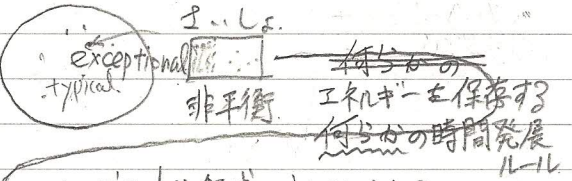 さいしょ.
exceptional
typical
非平衡
何らかの
エネルギーを保存する
何らかの時間発展
ルール